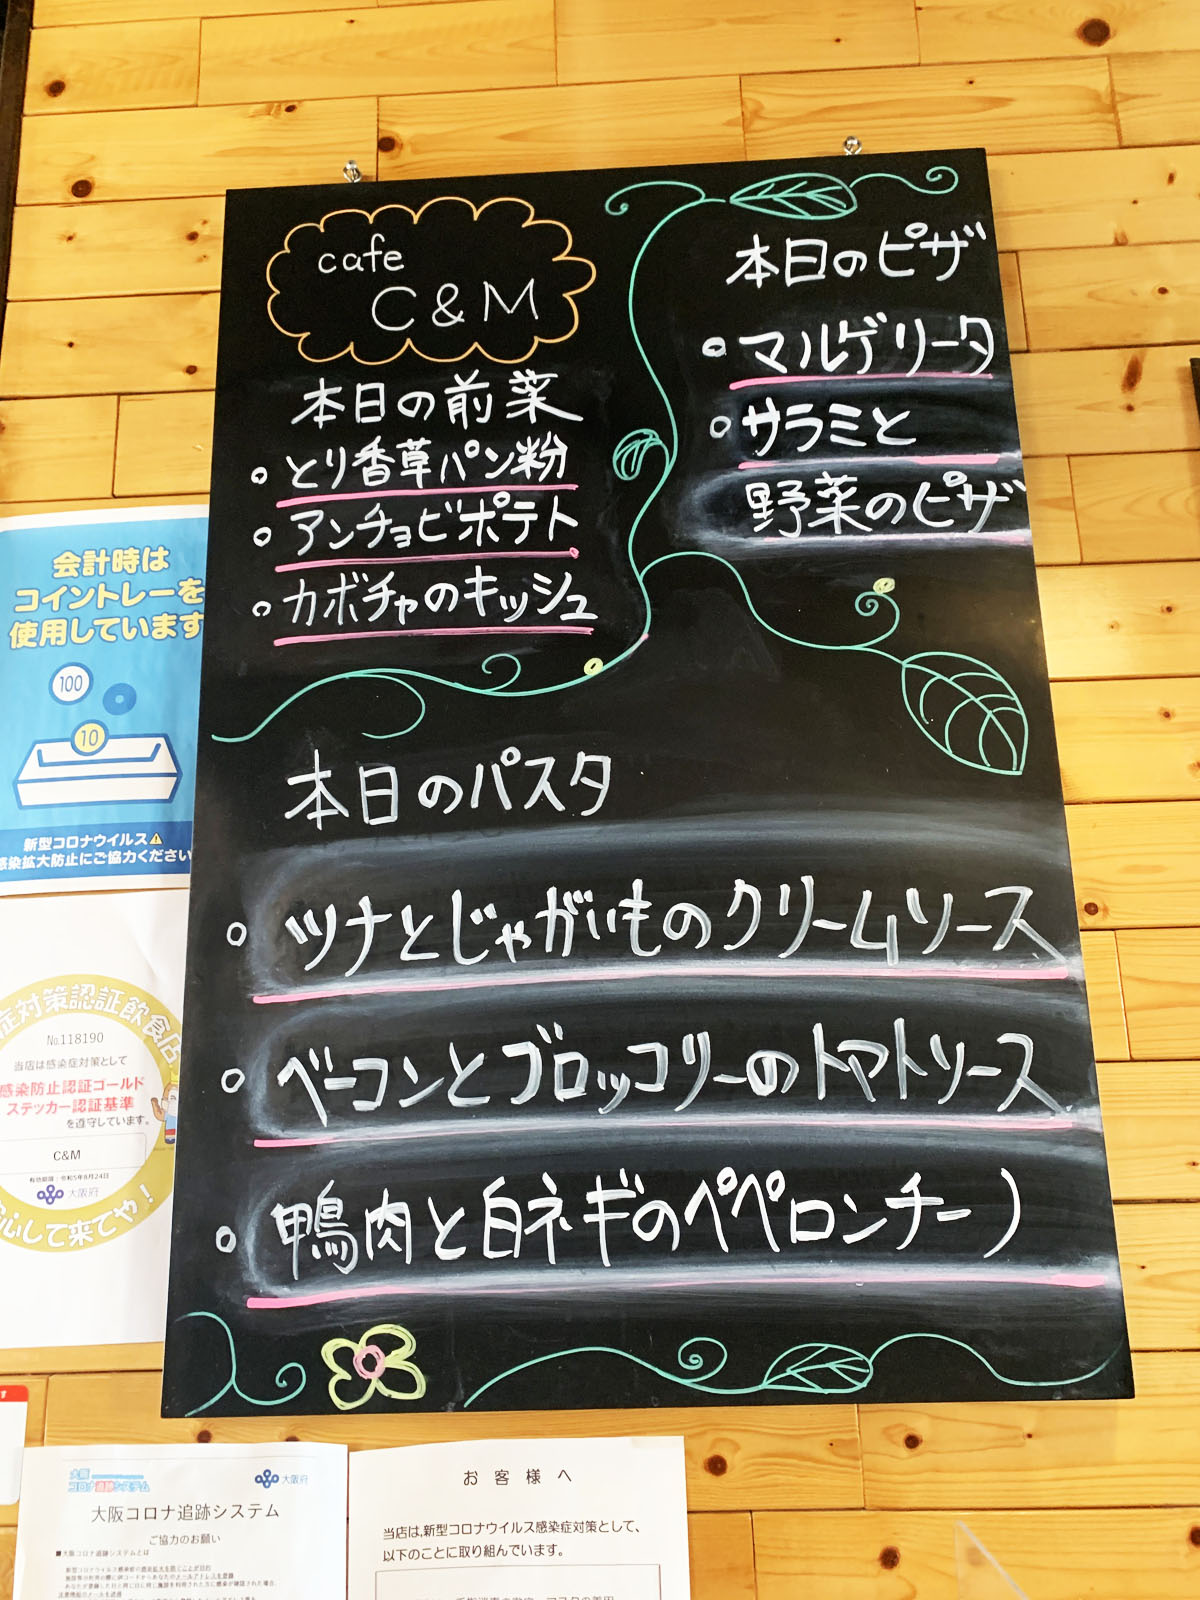 cafe
C&M
本日の前菜
とり香草パン粉
アンチョビポテト
カボチャのキッシュ
本日のピザ
マルゲリータ
サラミと
野菜のピザ
本日のパスタ
ツナとじゃがいものクリームソース
ベーコンとブロッコリーのトマトソース
鴨肉と白ネギのペペロンチーノ
会計時は
コイントレーを
使用しています
100
10
新型コロナウイルス
感染拡大防止にご協力ください
症対策認証飲食店
No.118190
当店は感染症対策として
感染防止認証ゴールド
ステッカー認証基準
を遵守しています。
C&M
有効期限:令和5年8月24日
大阪府
心して来てや!
大阪
コロナ追跡システム
大阪府
大阪コロナ追跡システム
ご協力のお願い
■大阪コロナ追跡システムとは
お客様へ
当店は、新型コロナウイルス感染症対策として、
以下のことに取り組んでいます。